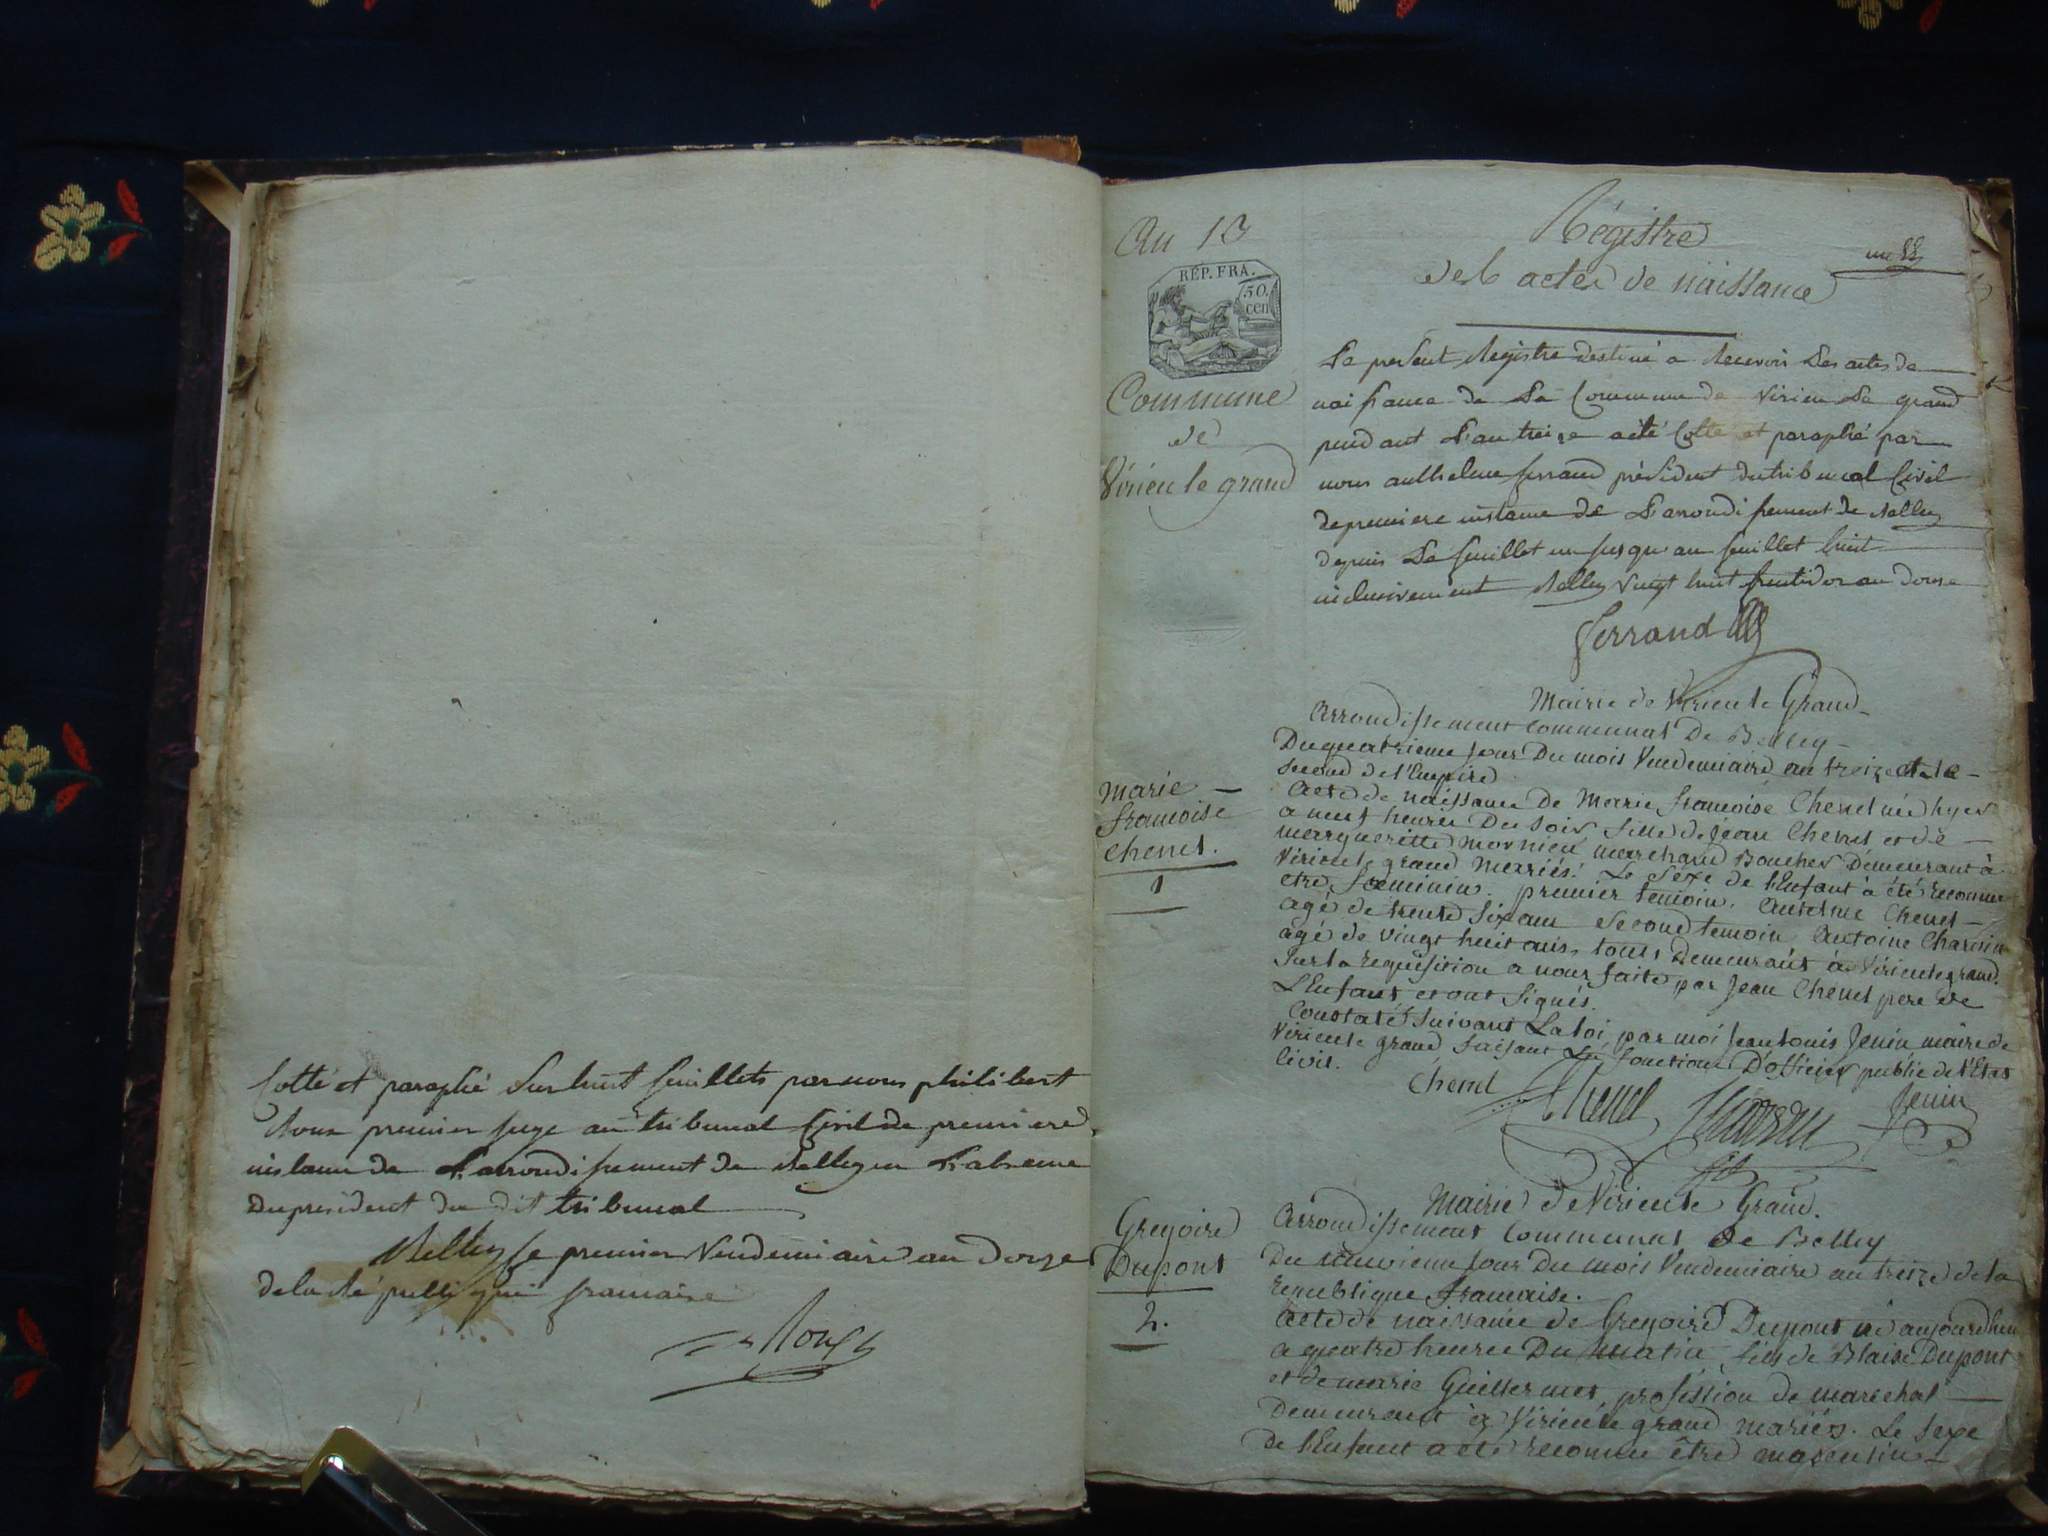 Cotté et paraphé sur huit feuillets par nous philibert
Roux premier juge au tribunal Civil de premiere
instance de L'arrondissement de Belley en L'absence
du président du dit tribunal
Belley le premier Vendemiaire an douze
de la République francaise
Roux
An 13
REP. FRA.
50.
cen
Commune
de
Virieu le grand
Régistre
des actes de naissance
un
Le present Registre destiné a Recevoir Les actes de
naissance de La Commune de Virieu Le grand
pendant L'an treize a été Cotté et paraphé par
nous anthelme ferrand président du tribunal Civil
de premiere instance de L'arrondissement de Belley
depuis Le feuillet un jusqu'au feuillet huit
inclusivement Belley vingt huit fructidor an douze
ferrand
Mairie de Virieu le Grand
Arrondissement Communal De Belley
Du quatrieme jour Du mois Vendemiaire an treize et le
second de l'Empire
Marie
francoise
Chenel.
1
Acte de naissance De Marie francoise Chenel née hyer
a neuf heures Du soir fille de jean Chenel et de
margueritte mornieu marchand Boucher Demeurant à
Virieu le grand Marriés. Le Sexe de l'Enfant à été reconnu
etre Foeminin. premier temoin. Antelme Chenel
agé de trente six ans second temoin Antoine Charvin
agé de vingt huit ans, tous Demeurant à Virieu le grand.
Sur la requisition a nous faite par Jean Chenel pere de
L'Enfant et ont signés.
Constaté Suivant La loi, par moi Jean Louis Jenin maire de
Virieu le grand faisant Les fonctions D'officier public de l'Etat
Civil.
Chenel Chenel Charvin Jenin
Mairie de Virieu le Grand.
Arrondissement Communal de Belley
Gregoire
Dupont
2.
Du neuvieme jour Du mois Vendemiaire an treize de la
republique francaise.
Acte de naissance de Gregoire Dupont né aujourdhui
a quatre heures Du matin fils de Blaise Dupont
et de marie Guillermet, profession de marechal
Demeurant à Virieu le grand mariés. Le sexe
de l'Enfant a été reconnu être masculin